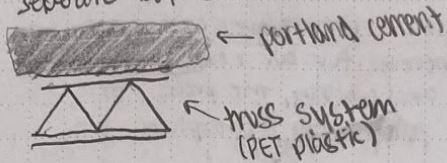 separate
portland cement
truss system
(PET plastic)